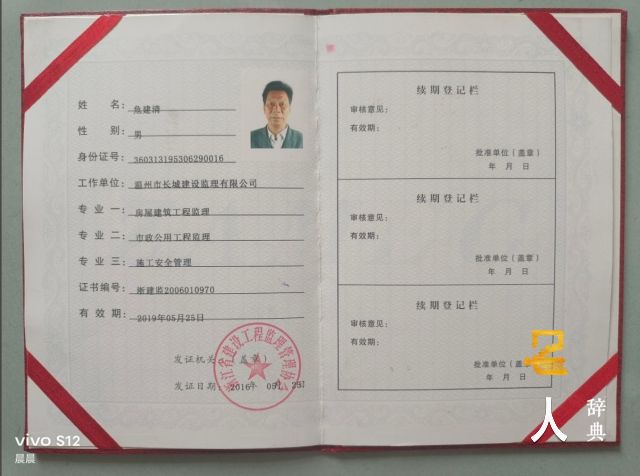 姓 名: 危建清
性 别: 男
身份证号: 360313195306290016
工作单位: 温州市长城建设监理有限公司
专 业 一: 房屋建筑工程监理
专 业 二: 市政公用工程监理
专 业 三: 施工安全管理
证书编号: 浙建监2006010970
有 效 期: 2019年05月25日
发证机关(盖章)
发证日期: 2016年 05月 25日
浙江省建设工程监理管理协会
续期登记栏
审核意见:
有效期:
批准单位(盖章)
年 月 日
续期登记栏
审核意见:
有效期:
批准单位(盖章)
年 月 日
续期登记栏
审核意见:
有效期:
批准单位(盖章)
年 月 日
人 辞典
vivo S12
晨晨